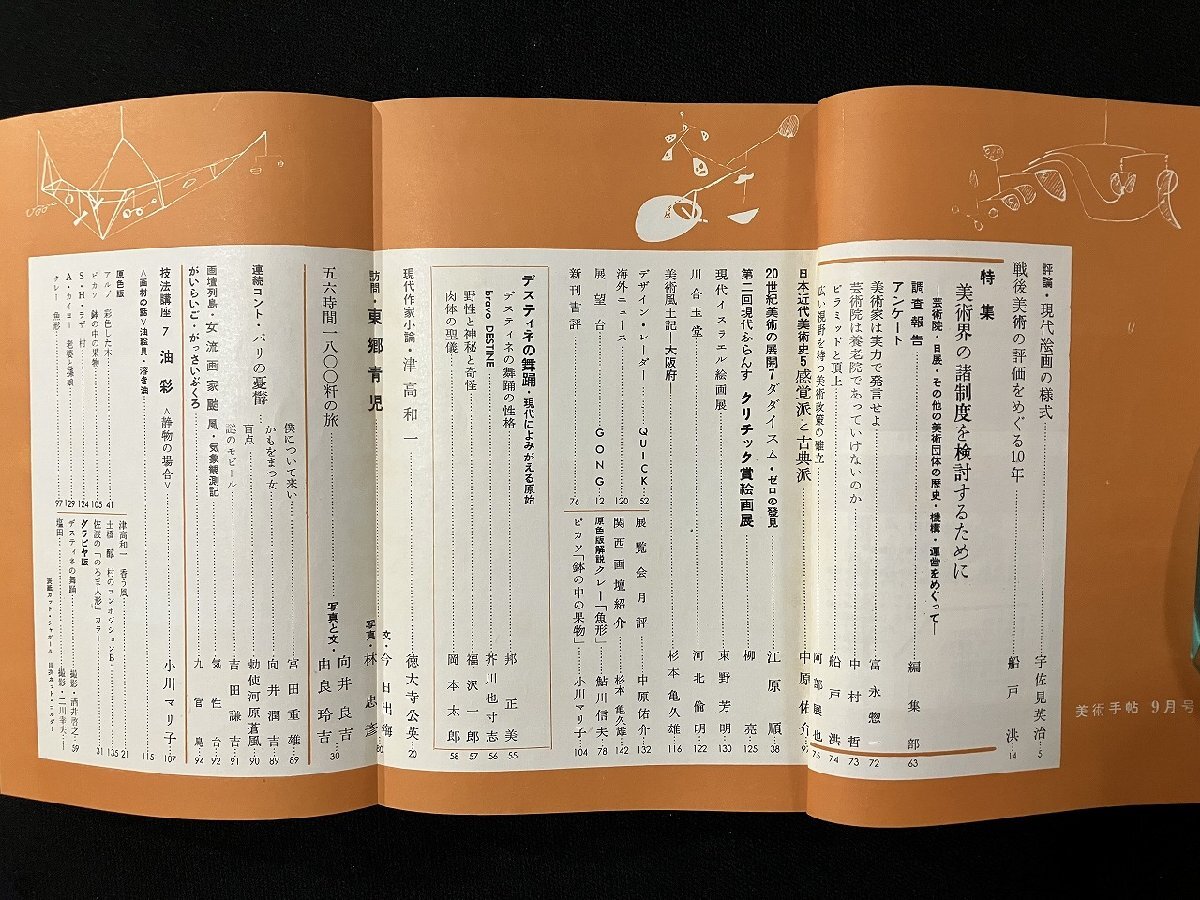 美術手帖 9月号
評論・現代絵画の様式……宇佐見英治…5
戦後美術の評価をめぐる10年……船戸 洪…14
特集
美術界の諸制度を検討するために
調査報告
―芸術院・日展・その他の美術団体の歴史・機構・運営をめぐって―
編集部…63
アンケート
美術家は実力で発言せよ……富永惣一…72
芸術院は養老院であっていけないのか……中村 哲…73
ピラミッドと頂上……船戸 洪…74
広い視野を持つ美術政策の確立……阿部展也…75
日本近代美術史5 感覚派と古典派……中原佑介
20世紀美術の展開・7 ダダイスム・ゼロの発見……江原 順…38
第二回現代ふらんす クリチック賞絵画展……柳 亮…125
現代イスラエル絵画展……東野芳明…130
川合玉堂……河北倫明…122
美術風土記―大阪府……杉本亀久雄…116
デザイン・レーダー……QUICK…52
海外ニュース……120
展望台……GONG…12
新刊書評……76
展覧会月評……中原佑介…132
関西画壇紹介……杉本亀久雄…142
原色版解説 クレー「魚形」……鮎川信夫…78
ピカソ「鉢の中の果物」……小川マリ子…104
デスティネの舞踊 現代によみがえる原始
デスティネの舞踊の性格……邦 正美…55
bravo DESTINE……芥川也寸志…56
野性と神秘と奇怪……福沢一郎…57
肉体の聖儀……岡本太郎…58
現代作家小論・津高和一……徳大寺公英…20
訪問・東郷青児
文・今日出海
写真・林 忠彦…80
五六時間一八〇〇粁の旅……写真と文・向井良吉 由良玲吉…30
連続コント・パリの憂鬱
僕について来い……宮田重雄…69
かもをまつ女……向井潤吉…89
盲点……勅使河原蒼風…90
謎のモビール……吉田謙吉…91
画壇列島・女流画家颱風・気象観測記……気性台…92
がいらいご・がっさいぶくろ……九官鳥…94
技法講座 7 油彩 <静物の場合>……小川マリ子…107
<画材の話> 油絵具・溶き油……115
原色版
アルプ 彩色した木……41
ピカソ 鉢の中の果物……105
S・H・ラザ 村……134
クレー 魚形……97
津高和一 香う風……21
グラビヤ版
デスティネの舞踊……撮影・酒井啓之…59
塩田……撮影・二川幸夫